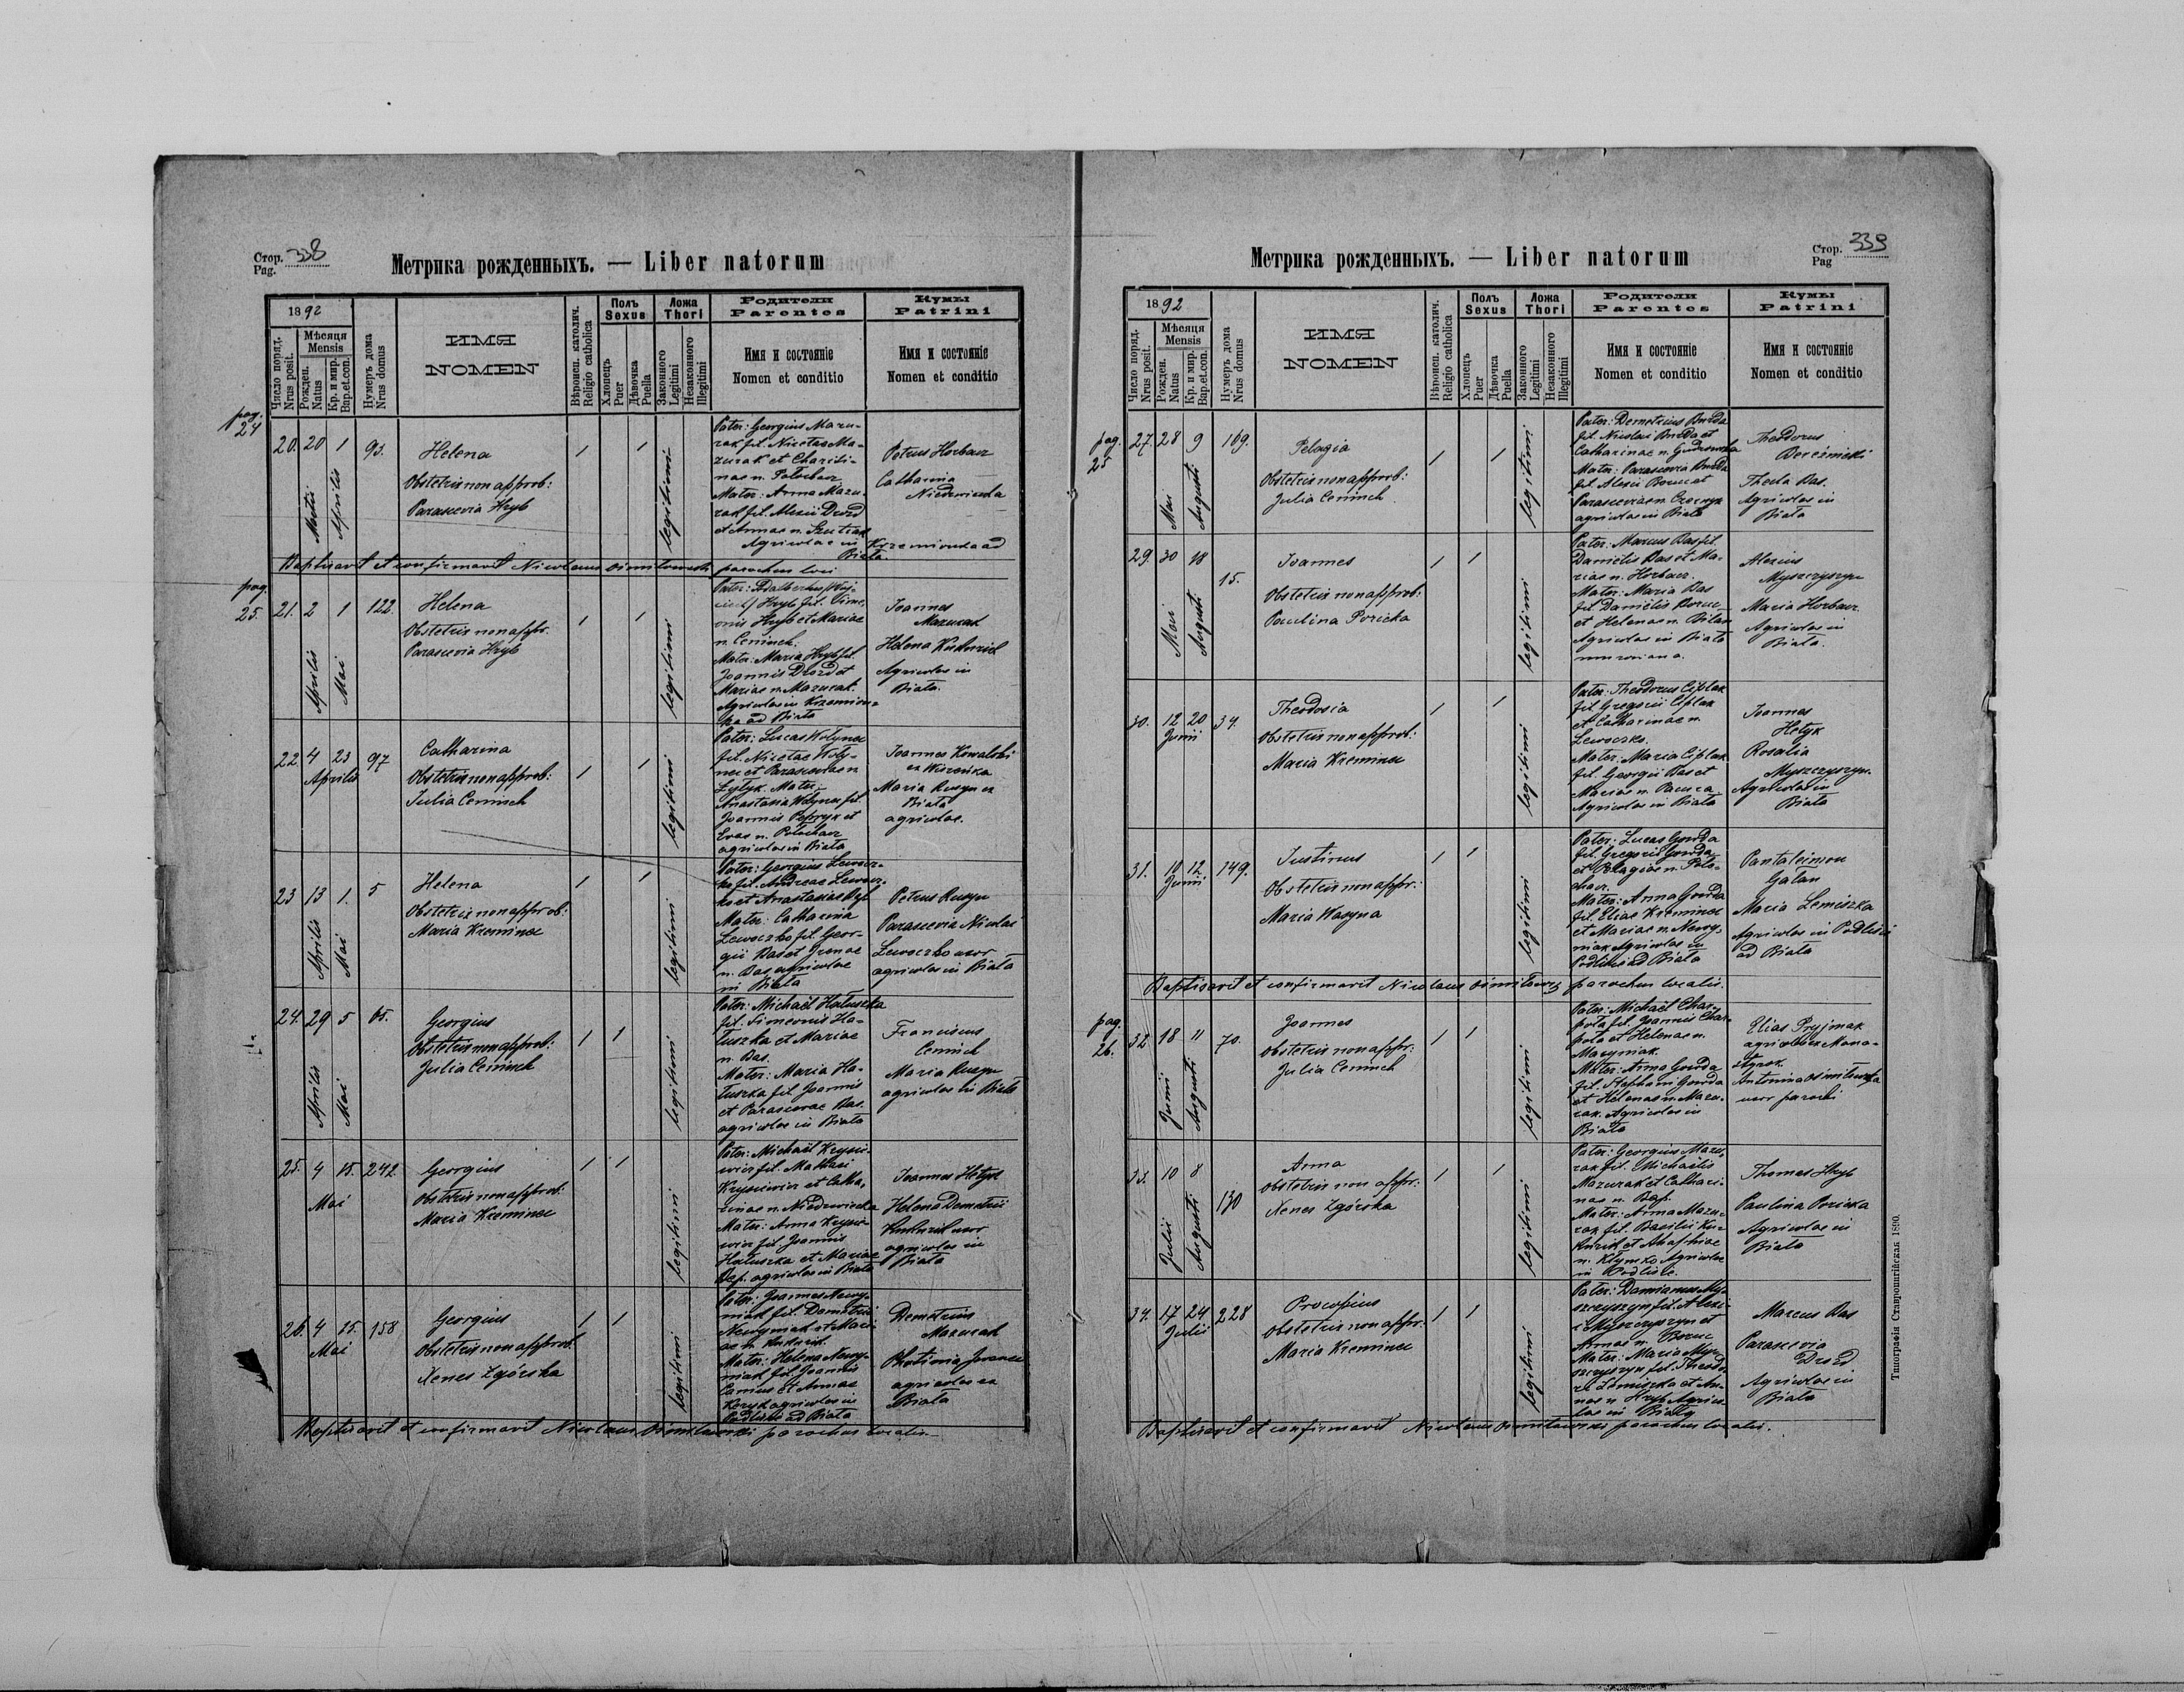 Стор. 338
Pag.
Метрика рожденныхъ. — Liber natorum
1892
Число поряд.
Nrus posit.
Мѣсяця
Mensis
Рожден.
Natus
Кр. и мир.
Bap.et.con.
Нумеръ дома
Nrus domus
ИМЯ
NOMEN
Вѣроисп. католич.
Religio catholica
Полъ
Sexus
Хлопець
Puer
Дѣвочка
Puella
Ложа
Thori
Законного
Legitimi
Незаконного
Illegitimi
Родители
Parentes
Имя и состояніе
Nomen et conditio
Кумы
Patrini
Имя и состояніе
Nomen et conditio
pag.
24
20. 20 1 93.
Martii Aprilis
Helena
Obstetrix non approb:
Parascevia Hryb
legitimi
Pater: Georgius Mazu-
rak fil. Nicetae Ma-
zurak et Chariti-
nae n. Potochacz
Mater: Anna Mazu-
rak fil. Alexii Drozd
et Annae n.
Agricolae in Krzemionka ad
Biała
Petrus Horbacz
Catharina
Niedzwiecka
Baptisavit et confirmavit Nicolaus parochus loci
pag.
25.
21. 2 1 122
Aprilis Mai
Helena
Obstetrix non appr.
Parascevia Hryb
legitimi
Hryb fil. Sime-
onis Hryb et Mariae
n. Ceninch.
Mater: Maria Hryb fil
Joannis Drozd et
Mariae n. Mazurak.
Agricolae in Krzemion-
ka ad Biała
Ioannes
Mazurak
Helena Kucharzid
Agricolae in
Biała.
22 4 23 97
Aprilis
Catharina
Obstetrix non approb:
Julia Ceninch
legitimi
Pater: Lucas Wołynec
fil. Nicetae Woły-
nec et Parasceviae n
Łytyk. Mater:
Anastasia Wołynec fil.
Joannis et
Evae n. Potochacz
agricolae in Biała
Ioannes Kowalski
ex
Maria Rusyn ex
Biała
agricolae.
23 13 1. 5
Aprilis Mai
Helena
Obstetrix non approb:
Maria Kreminec
legitimi
Pater: Georgius Lewocz-
ko fil. Andreae Lewocz-
ko et Anastasiae
Mater: Catharina
Lewoczko fil. Geor-
gii Bas et Irenae
n. Bas agricolae
in Biała
Petrus Rusyn
Parascevia Nicolai
Lewoczko uxor
agricolae in Biała
24. 29 5 65.
Aprilis Mai
Georgius
Obstetrix non approb:
Julia Ceninch
legitimi
Pater: Michaël Hałuszka
fil. Simeonis Ha-
łuszka et Mariae
n. Bas.
Mater: Maria Ha-
łuszka fil. Joannis
et Parasceviae Bas.
agricolae in Biała
Franciscus
Ceninch
Maria Rusyn
agricolae in Biała
25. 4 15. 242
Mai
Georgius
Obstetrix non approb:
Maria Kreminec
legitimi
Pater: Michaël Krysie-
wicz fil. Mathaei
Krysiewicz et Catha-
rinae n. Niedzwiecka
Mater: Anna Krysie-
wicz fil. Joannis
Hałuszka et Mariae
agricolae in Biała
Ioannes Hetyk
Helena Demetrii
uxor
agricolae in
Biała
26. 4 15. 158
Mai
Georgius
Obstetrix non approb:
Xenes Zgórska
legitimi
Pater: Joannes Nawy-
niak fil. Demetrii
et Mari-
ae n.
Mater: Helena
fil. Joannis
et Annae
agricolae in
Podlisie ad Biała
Demetrius
Mazurak
Photinia
agricolae ex
Biała
Baptisavit et confirmavit Nicolaus parochus localis
Метрика рожденныхъ. — Liber natorum
Стор. 339
Pag
1892
Число поряд.
Nrus posit.
Мѣсяця
Mensis
Рожден.
Natus
Кр. и мир.
Bap.et.con.
Нумеръ дома
Nrus domus
ИМЯ
NOMEN
Вѣроисп. католич.
Religio catholica
Полъ
Sexus
Хлопець
Puer
Дѣвочка
Puella
Ложа
Thori
Законного
Legitimi
Незаконного
Illegitimi
Родители
Parentes
Имя и состояніе
Nomen et conditio
Кумы
Patrini
Имя и состояніе
Nomen et conditio
pag.
25
27. 28 9 169.
Mai Augusti
Pelagia
Obstetrix non approb:
Julia Ceninch
legitimi
Pater: Demetrius Burda
fil. Nicolai Burda et
Catharinae n.
Mater: Parascevia Burda
fil. Alexii et
Parasceviae n.
agricolae in Biała
Theodorus
Bereźnicki
Thecla Bas.
Agricolae in
Biała
29. 30 18 15.
Mai Augusti
Ioannes
Obstetrix non approb:
Paulina Poricka
legitimi
Pater: Marcus Bas fil.
Danielis Bas et Ma-
riae n. Horbacz.
Mater: Maria Bas
fil Danielis Boruc
et Helenae n. Bilan
Agricolae in Biała
Alexius
Myszczyszyn
Maria Horbacz
Agricolae in
Biała.
30. 12 20 34.
Junii
Theodosia
Obstetrix non approb:
Maria Kreminec
legitimi
Pater: Theodorus Ciplak
fil. Gregorii Ciplak
et Catharinae n.
Lewoczko.
Mater: Maria Ciplak
fil. Georgii Bas et
Mariae n.
Agricolae in Biała
Ioannes
Hetyk
Rosalia
Myszczyszyn.
Agricolae in
Biała
31. 10 12 149.
Junii
Iustinus
Obstetrix non appr:
Maria Hasyna
legitimi
Pater: Lucas Gowda
fil. Gregorii Gowda
et Pelagiae n. Poto-
chacz.
Mater: Anna Gowda
fil. Eliae Kreminec
et Mariae n. Nawy-
niak Agricolae in
Podlisie ad Biała
Pantaleimon
Gałan
Maria Lemiszka
Agricolae in Podlisie
ad Biała
Baptisavit et confirmavit Nicolaus parochus localis.
pag.
26.
32 18 11 70.
Junii Augusti
Joannes
Obstetrix non appr:
Julia Ceninch
legitimi
Pater: Michaël Char-
pota fil. Joannis Char-
pota et Helenae n.
Mater: Anna Gowda
fil. Stephani Gowda
et Helenae n. Mazu-
rak. Agricolae in
Biała
Elias Pryjmak
agricola ex Mona-
styrok.
Antonina
uxor parochi
33. 10 8 130
Julii Augusti
Anna
obstetrix non appr:
Xenes Zgórska
legitimi
Pater: Georgius Mazu-
rak fil. Michaelis
Mazurak et Cathari-
nae n.
Mater: Anna Mazu-
rak fil. Basilii
et Ahaphiae
n. Klymko Agricolae
in Podlisie.
Thomas Hryb
Paulina Poricka
Agricolae in
Biała
34. 17 24 228
Julii
Procopius
Obstetrix non appr.
Maria Kreminec
legitimi
Pater: Damianus My-
szczyszyn fil. Alexi-
i Myszczyszyn et
Annae n. Boruc
Mater: Maria My-
szczyszyn fil. Theodo-
ri Lemiszka et An-
nae n Hryb Agrico-
lae in Biały
Marcus Bas
Parascevia
Drozd
Agricolae in
Biała
Baptisavit et confirmavit Nicolaus parochus localis.
Типографія Ставропигійская 1890.